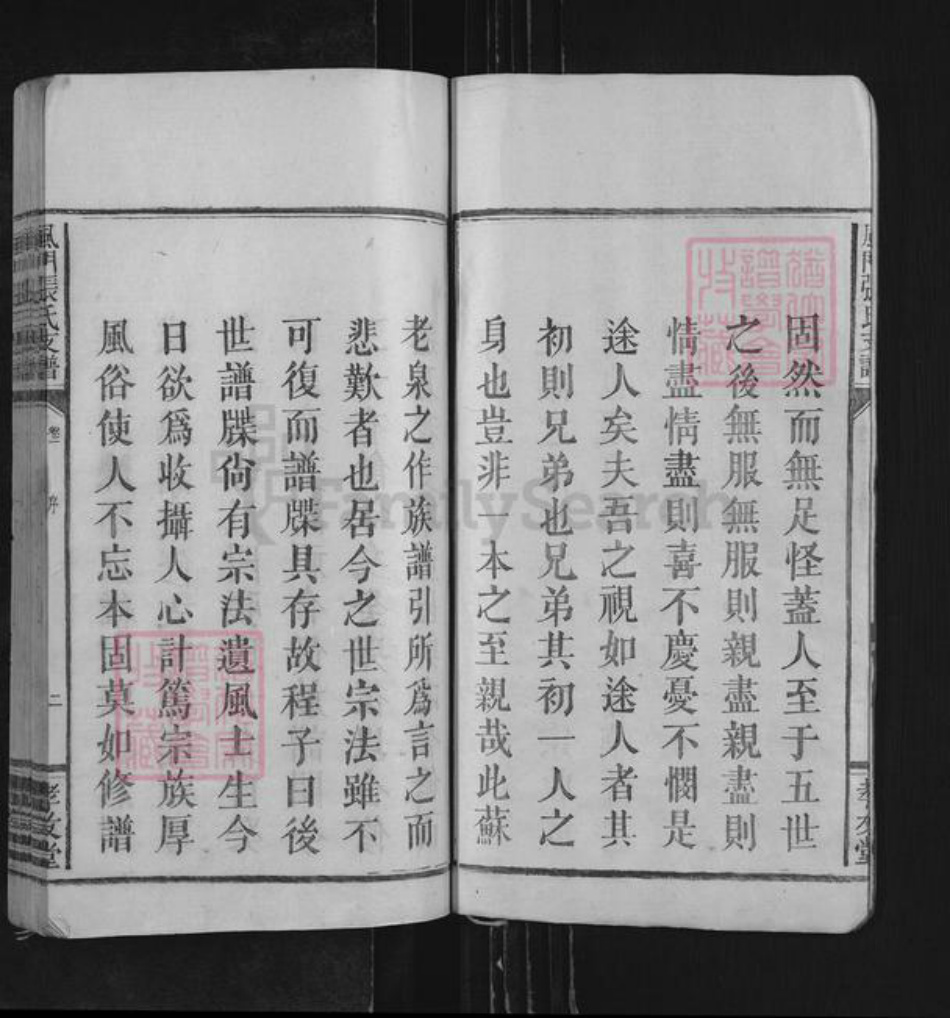 固然而無足怪蓋人至于五世
之後無服無服則親盡親盡則
情盡情盡則喜不慶憂不憫是
途人矣夫吾之視如途人者其
初則兄弟也兄弟其初一人之
身也豈非一本之至親哉此蘇
老泉之作族譜引所爲言之而
悲歎者也居今之世宗法雖不
可復而譜牒具存故程子曰後
世譜牒尙有宗法遺風士生今
日欲爲收攝人心計篤宗族厚
風俗使人不忘本固莫如修譜
張氏支譜
卷一
序
二
孝友堂
譜學會
收藏
FamilySearch